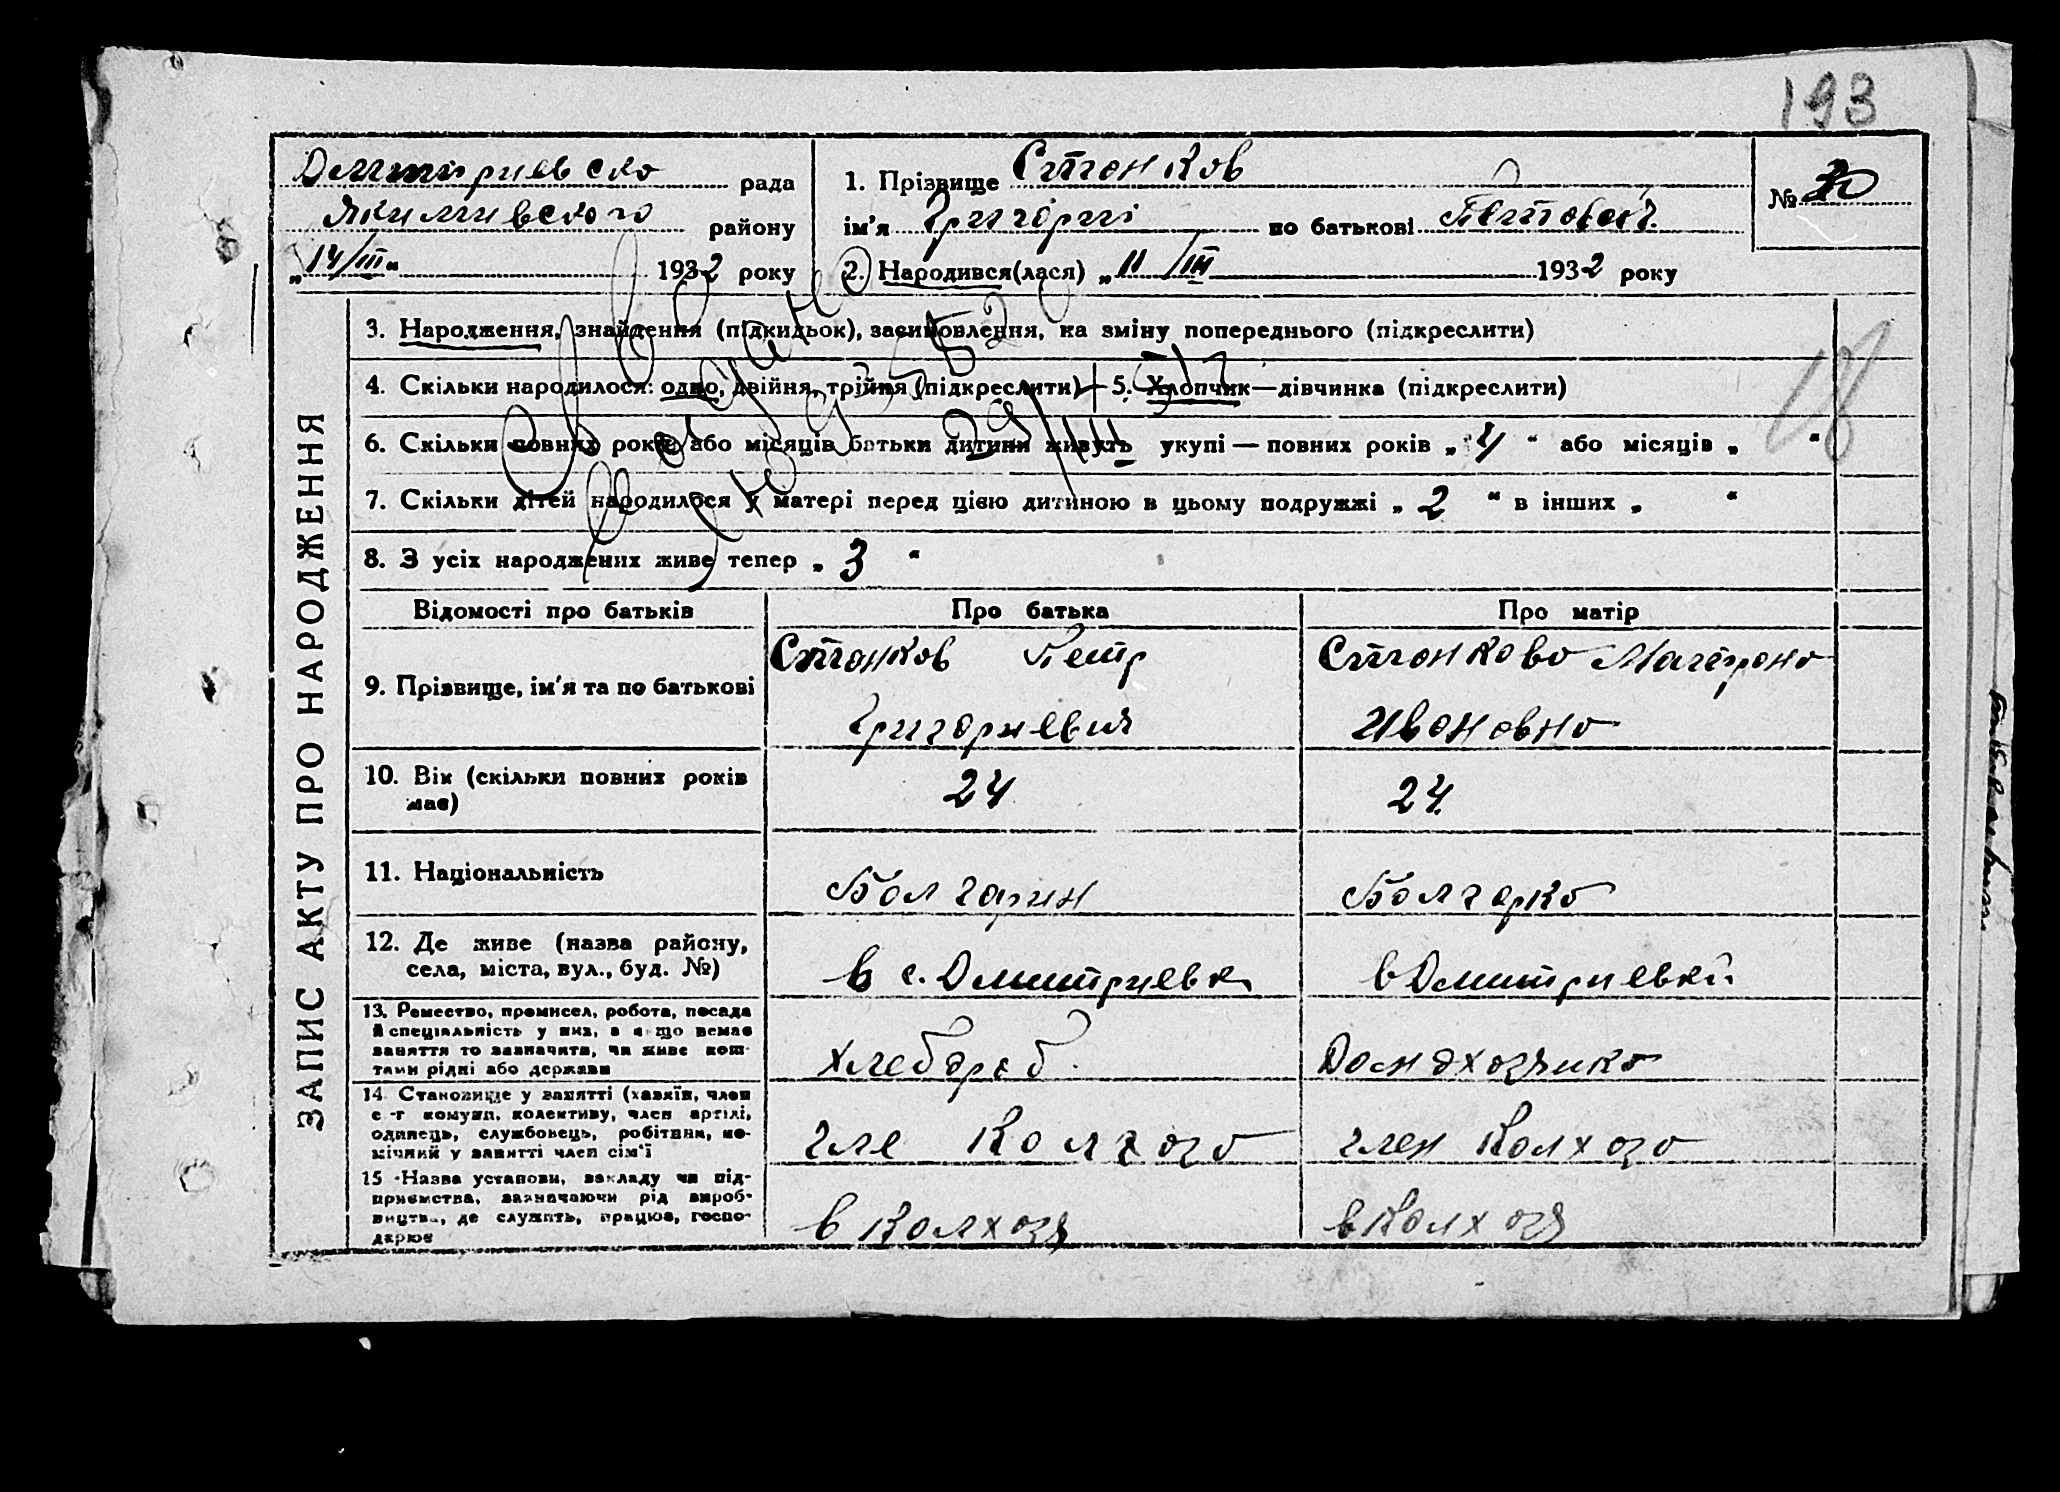 193
Дмитриевско рада
Якимивского району
„14/III“ 1932 року
1. Прізвище Станков
ім'я Григорий по батькові Петрович
2. Народився(лася) „11/III 1932 року
№
ЗАПИС АКТУ ПРО НАРОДЖЕННЯ
3. Народження, знайдення (підкидьок), засиновлення, на зміну попереднього (підкреслити)
4. Скільки народилося: одно, двійня, трійня (підкреслити)
5. Хлопчик—дівчинка (підкреслити)
6. Скільки повних років або місяців батьки дитини живуть укупі — повних років „4“ або місяців „ “
7. Скільки дітей народилося у матері перед цією дитиною в цьому подружжі „2“ в інших „ “
8. З усіх народжених живе тепер „3“
Відомості про батьків Про батька Про матір
9. Прізвище, ім'я та по батькові
Станков Петр
Григориевич
Станкова
Ивановна
10. Вік (скільки повних років має)
24
24
11. Національність
Болгарин
Болгарка
12. Де живе (назва району, села, міста, вул., буд. №)
в с. Дмитриевки
в Дмитриевки
13. Ремество, промисел, робота, посада й спеціяльність у них, а якщо немає заняття то зазначити, чи живе коштами рідні або держави
хлебороб
Домохозяика
14. Становище у занятті (хазяїн, член с.-г комуни, колективу, член артілі, одинець, службовець, робітник, помічний у занятті член сім'ї
чле Колхоза
член Колхоза
15. Назва установи, закладу чи підприємства, зазначаючи рід виробництва, де служить, працює, господарює
в Колхозя
в Колхозя